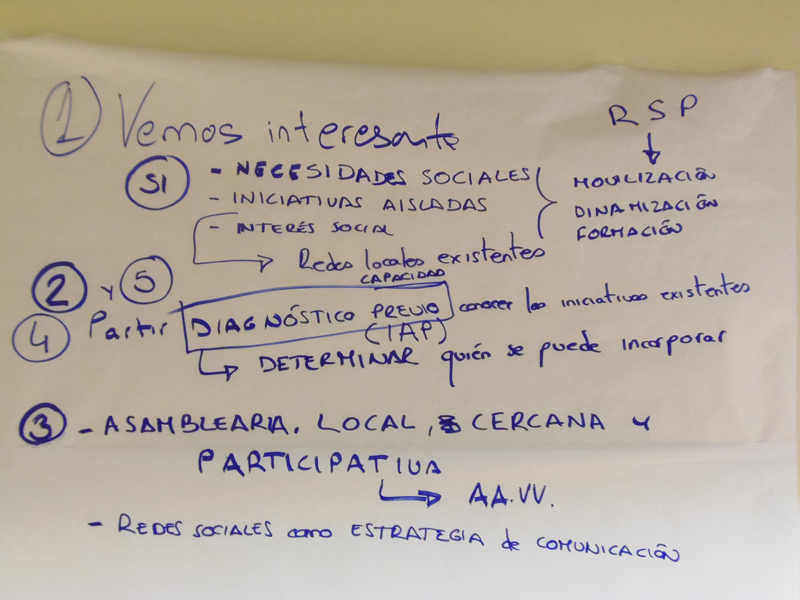 1) Vemos interesante
RSP
SI - NECESIDADES SOCIALES
- INICIATIVAS AISLADAS
- INTERÉS SOCIAL
MOVILIZACIÓN
DINAMIZACIÓN
FORMACIÓN
Redes locales existentes
CAPACIDAD
2 y 5
4 Partir DIAGNÓSTICO PREVIO conocer las iniciativas existentes
(IAP)
DETERMINAR quién se puede incorporar
3 - ASAMBLEARIA, LOCAL, CERCANA y
PARTICIPATIVA
AA.VV.
- REDES SOCIALES como ESTRATEGIA de COMUNICACIÓN